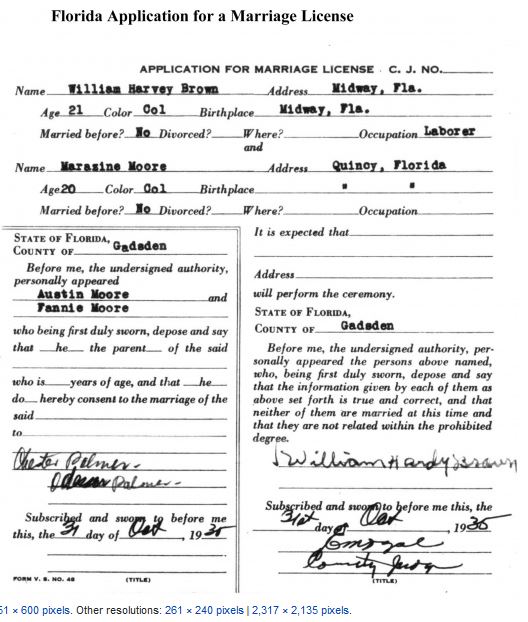 Florida Application for a Marriage License
APPLICATION FOR MARRIAGE LICENSE C. J. NO.
Name William Harvey Brown Address Midway, Fla.
Age 21 Color Col Birthplace Midway, Fla.
Married before? No Divorced? Where? Occupation Laborer
and
Name Marazine Moore Address Quincy, Florida
Age 20 Color Col Birthplace " "
Married before? No Divorced? Where? Occupation
STATE OF FLORIDA,
COUNTY OF Gadsden
Before me, the undersigned authority,
personally appeared
Austin Moore and
Fannie Moore
who being first duly sworn, depose and say
that he the parent of the said
who is years of age, and that he
do hereby consent to the marriage of the
said
to
Chester Palmer
Palmer
Subscribed and sworn to before me
this, the 31 day of Oct, 1935
FORM V. S. NO. 48 (TITLE)
It is expected that
Address
will perform the ceremony.
STATE OF FLORIDA,
COUNTY OF Gadsden
Before me, the undersigned authority, per-
sonally appeared the persons above named,
who, being first duly sworn, depose and say
that the information given by each of them as
above set forth is true and correct, and that
neither of them are married at this time and
that they are not related within the prohibited
degree.
William Hardy Brown
Subscribed and sworn to before me this, the
31st day of Oct 1935
County Judge
(TITLE)
51 × 600 pixels. Other resolutions: 261 × 240 pixels | 2,317 × 2,135 pixels.